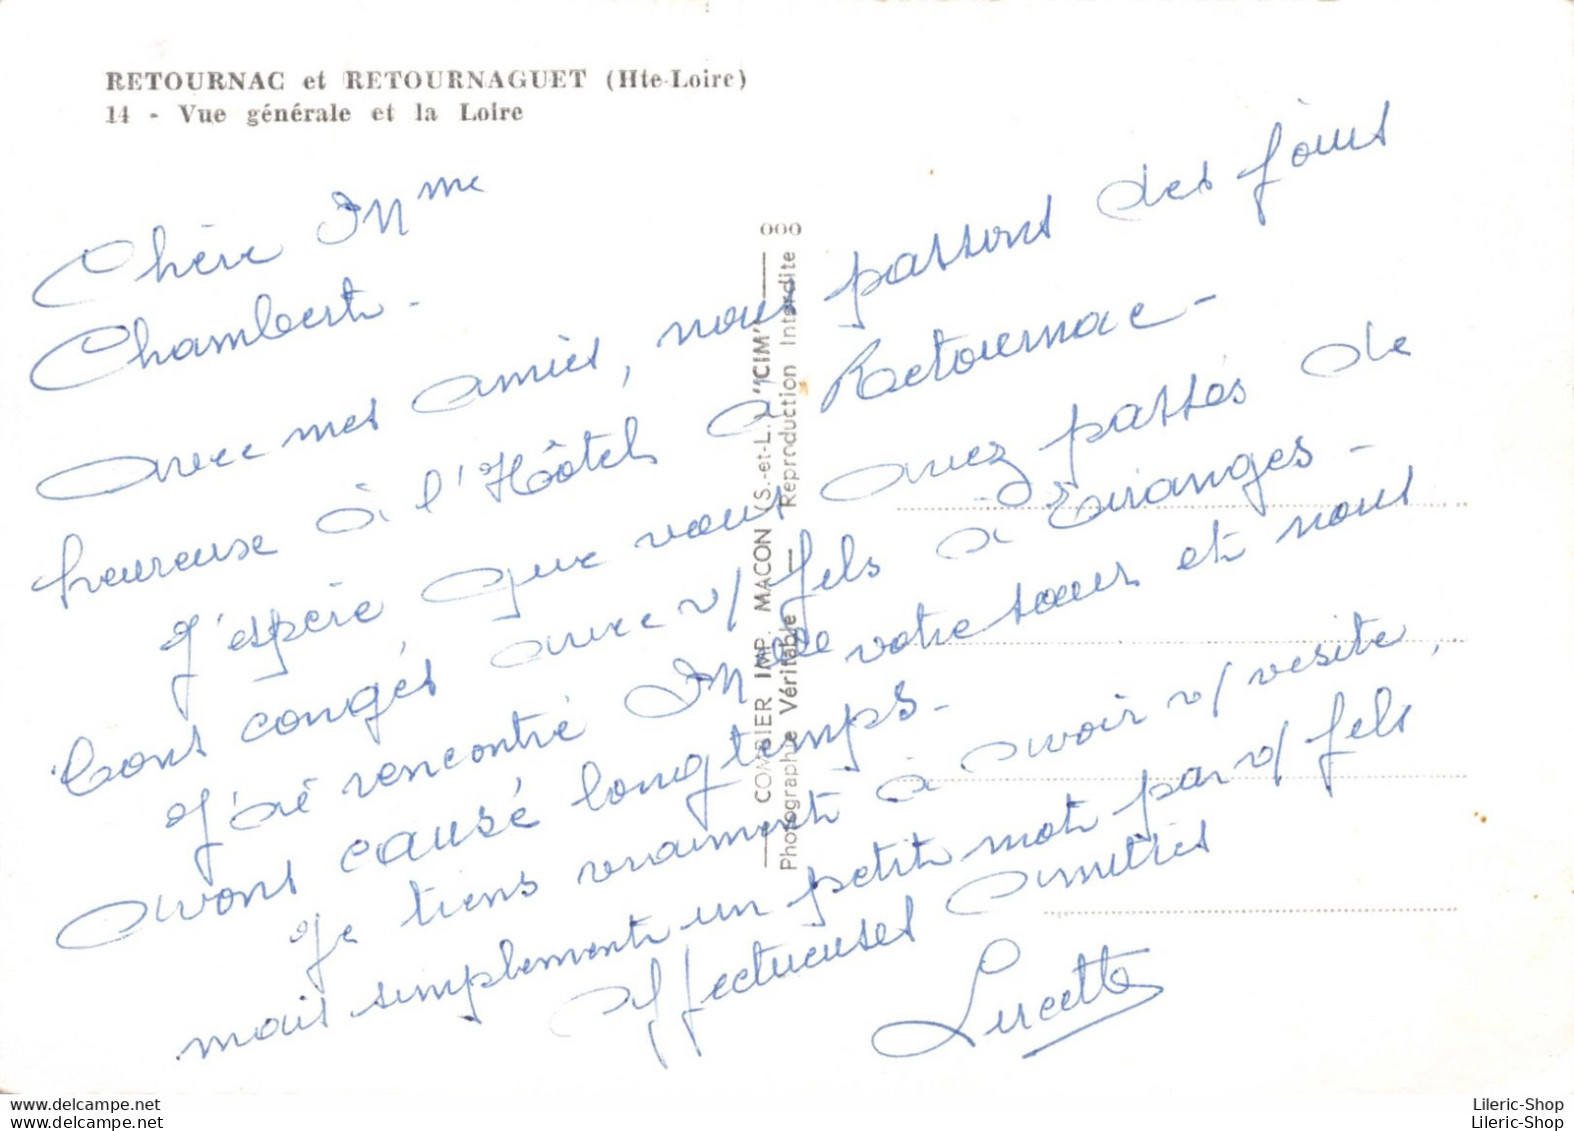 RETOURNAC et RETOURNAGUET (Hte-Loire)
14 - Vue générale et la Loire
Chère Mme
Chambert -
avec mes amies, nous passons des jours
heureuse à l'Hôtel à Retournac -
J'espère que vous avez passés de
bons congés avec v/ fils à Euranges -
J'ai rencontré Melle votre sœur et nous
avons causé longtemps -
Je tiens vraiment à avoir v/ visite,
mais simplement un petit mot par v/ fils
Affectueuses amitiés
Lucette
000
COMBIER IMP. MACON (S.-et-L.) "CIM"
Photographie Véritable — Reproduction Interdite
Lileric-Shop
Lileric-Shop
© myriade collection
© myriade collection